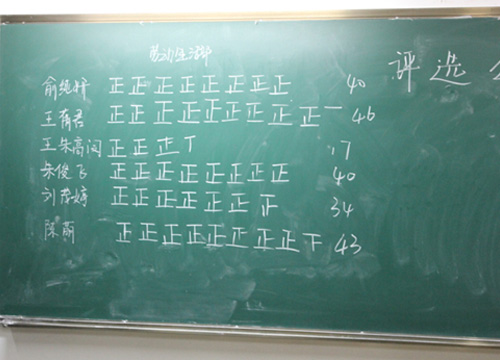 劳动生活部
评选
俞 正正正正正正正正 40
王蒨君 正正正正正正正正正一 46
王朱高 正正正丅 17
朱俊飞 正正正正正正正正 40
刘梦婷 正正正正正正正 34
陈萌 正正正正正正正正下 43